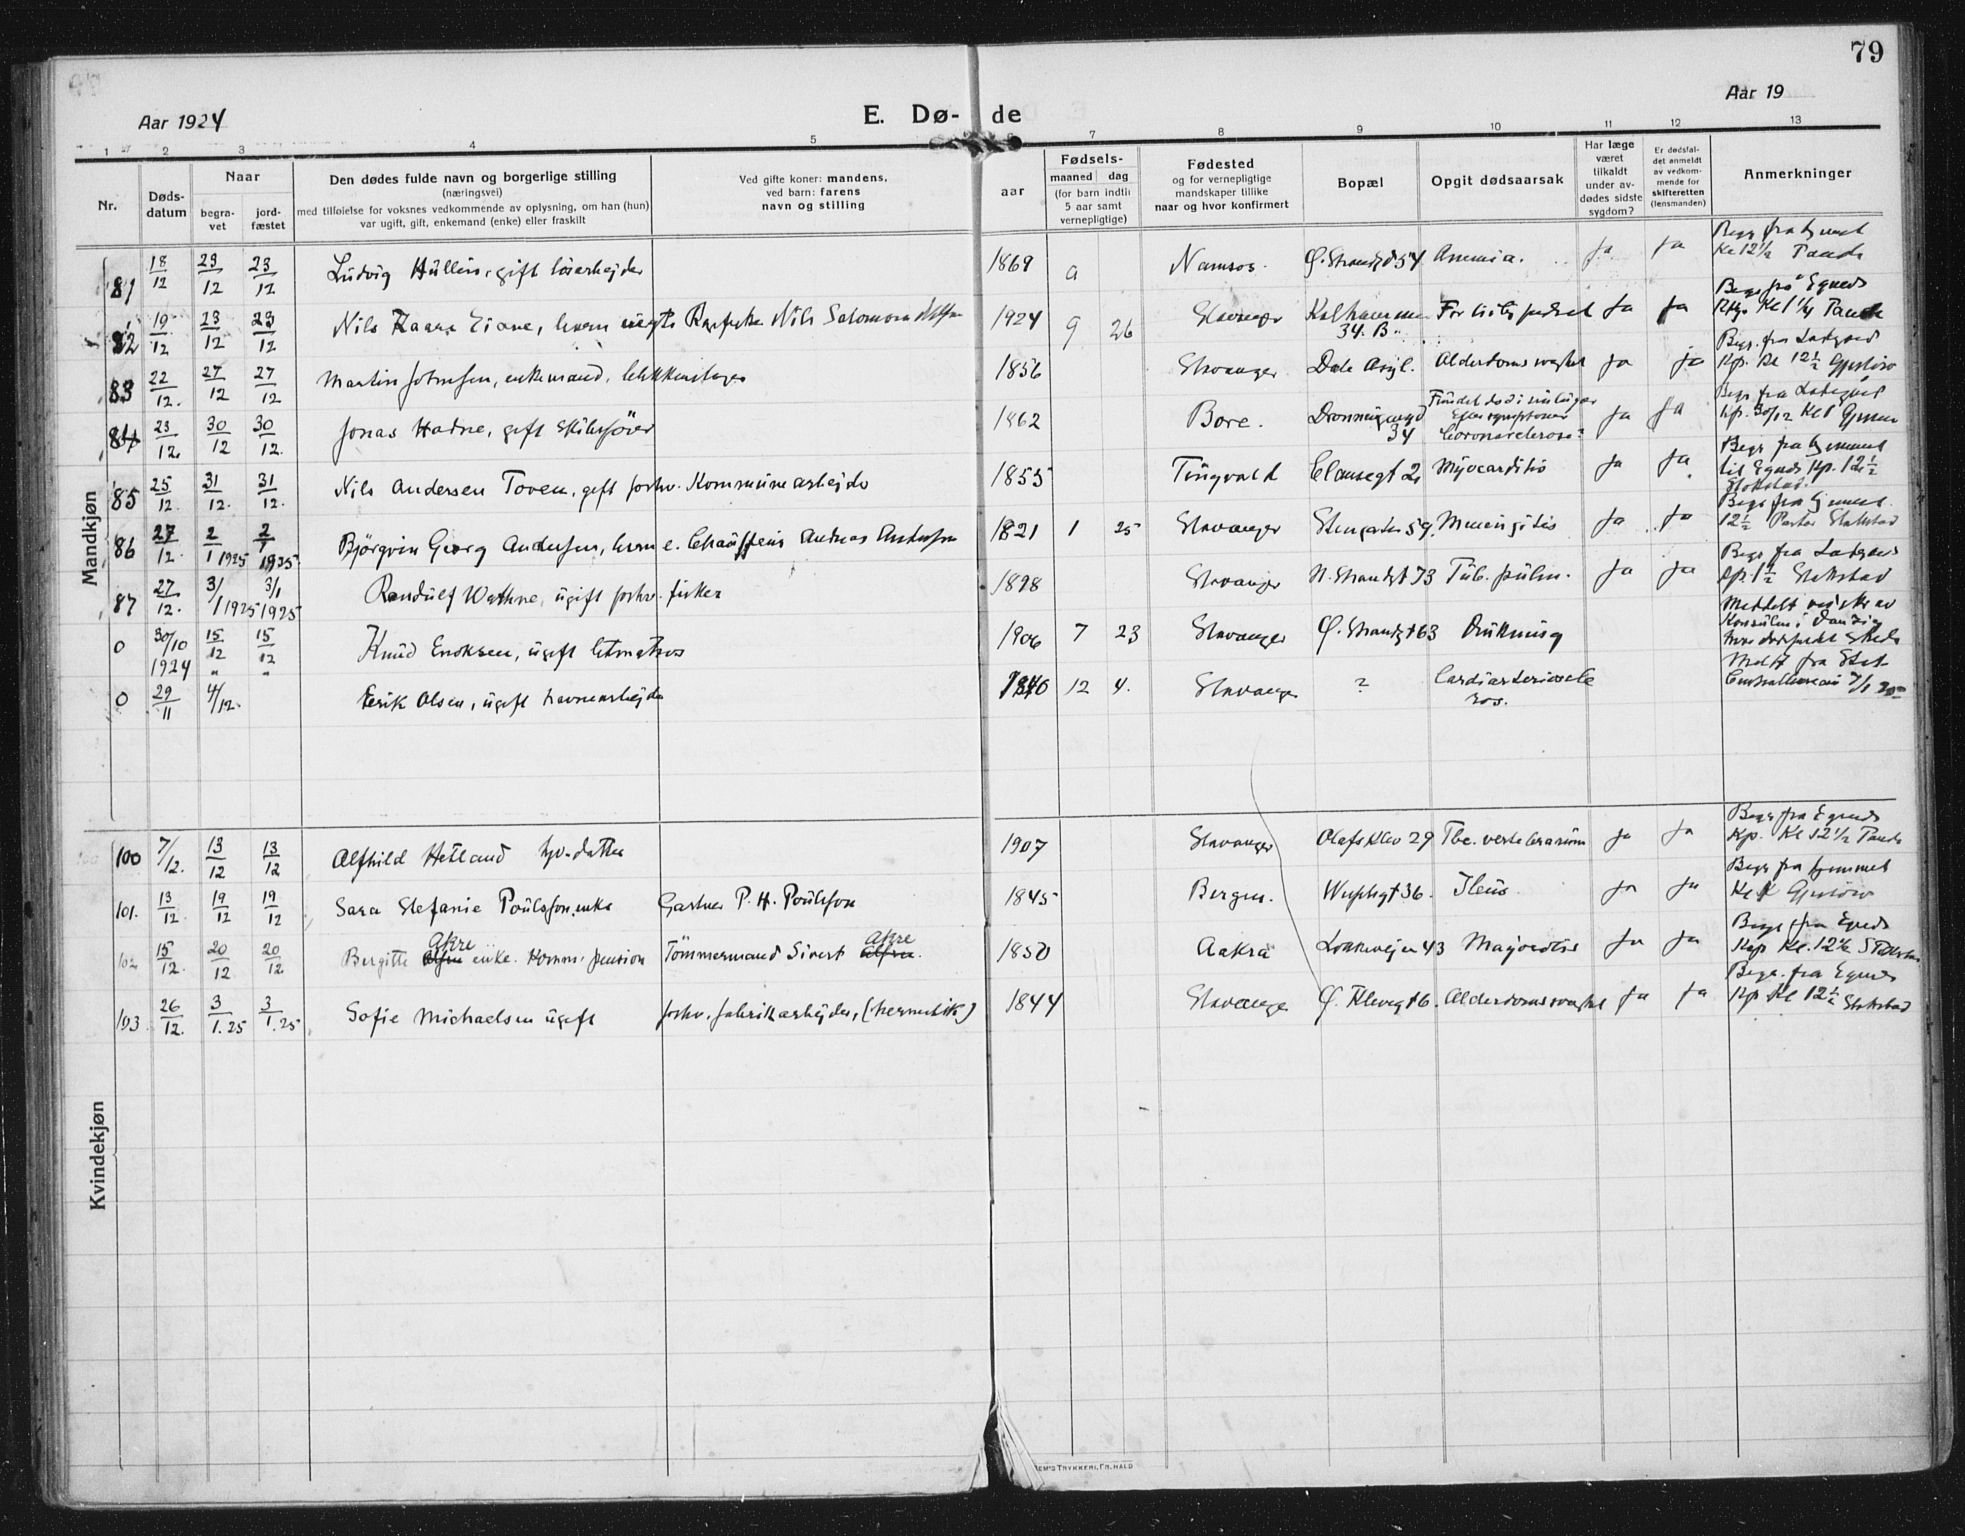 79
Aar 1924
E. Dø-de
Aar 19
1 2 3 4 5 6 7 8 9 10 11 12 13
Nr.
Døds-datum
Naar
begra-vet
jord-fæstet
Den dødes fulde navn og borgerlige stilling
(næringsvei)
med tilføielse for voksnes vedkommende av oplysning, om han (hun)
var ugift, gift, enkemand (enke) eller fraskilt
Ved gifte koner: mandens,
ved barn: farens
navn og stilling
aar
Fødsels-
maaned dag
(for barn indtil
5 aar samt
vernepligtige)
Fødested
og for vernepligtige
mandskaper tillike
naar og hvor konfirmert
Bopæl
Opgit dødsaarsak
Har læge
været
tilkaldt
under av-
dødes sidste
sygdom?
Er dødsfal-
det anmeldt
av vedkom-
mende for
skifteretten
(lensmanden)
Anmerkninger
Mandkjøn
81 18/12 23/12 23/12 Ludvig Hullin, gift løsarbejder 1869 Namsos. Ø. Strandgt 54 Anemia. Ja Ja Begr fra Hjemmet
Kl 12 1/2 Tande
82 19/12 23/12 23/12 Nils Kaare Eiane, Nils Salomon 1924 9 26 Stavanger 34. B. For tidlig Ja Ja Begr. fra Egneds
Kl 1 1/4 Tande
83 22/12. 27/12 27/12 Martin Johnsen, enkemand, 1856 Stavanger Dale Asyl. Alderdomssvaghet Ja Ja Begr. fra Ladegaard
Kp. Kl 12 1/2
84 23/12. 30/12 30/12. Jonas Hadne, gift Skibsfører 1862 Bore. 34 Fundet død i
Ja Ja Begr fra Ladegård
kp. 30/12 Kl 1
85 25/12. 31/12. 31/12. Nils Andersen Toven, gift forhv. Kommunearbejder 1855 Tingvold Clausegt 2 Myocarditis Ja Ja Begr fra Hjemmet
til Egneds Kp. 12 1/2
Stokstad.
86 27/12. 2/1 1925 2/1 1925 Bjørgvin Georg Andersen, Chauffeur Andreas Andersen 1921 1 25 Stavanger Stengaten 59. Meningitis Ja Ja Begr fra Hjemmet
12 1/2 Pastor Stokstad
87 27/12. 3/1 1925 3/1 1925 Randulf Wathne, ugift forhv. fisker 1898 Stavanger N. Strandgt 73 Tub. pulm. Ja Ja Begr fra Ladegaard
kp. 1 1/2 Stokstad
0 30/10 1924 15/12 " 15/12 " Knud Enoksen, ugift letmatros 1906 7 23 Stavanger Ø. Strandgt 63 Drukning Meddelt ved skr av
Konsulen i Danzig
0 29/11 4/12. Erik Olsen, ugift havnearbejder 12 4. Stavanger ? Cardiarterioscleros. Meddt fra Stat.
Centralbureau
Kvindekjøn
100 7/12. 13/12 13/12 Alfhild Hetland hjv. datter 1907 Stavanger Olafsklev 29 Tbc. vertebrarum Ja Ja Begr fra Egneds
Kp. Kl 12 1/2 Tande
101. 13/12. 19/12 19/12 Sara Stefanie Poulsson, enke Gartner P. H. Poulsson 1845 Bergen. 36. Ileus Ja Ja Begr fra Hjemmet
Kl 1
102 15/12. 20/12 20/12 Bergitte Akre enke. Komm. pension Tømmermand Sivert Akre 1850 Aakra Lokkevejen 43 Ja Ja Begr fra Egneds
Kap Kl. 12 1/2 Stokstad
103 26/12. 3/1.25 3/1.25 Sofie Michaelsen ugift forhv. fabrikarbejder, (hermetik) 1844 Stavanger Ø. Klevegt 6. Alderdomssvaghet Ja Ja Begr. fra Egneds
Kp Kl 12 1/2 Stokstad
TRYKKERI, FR. HALD